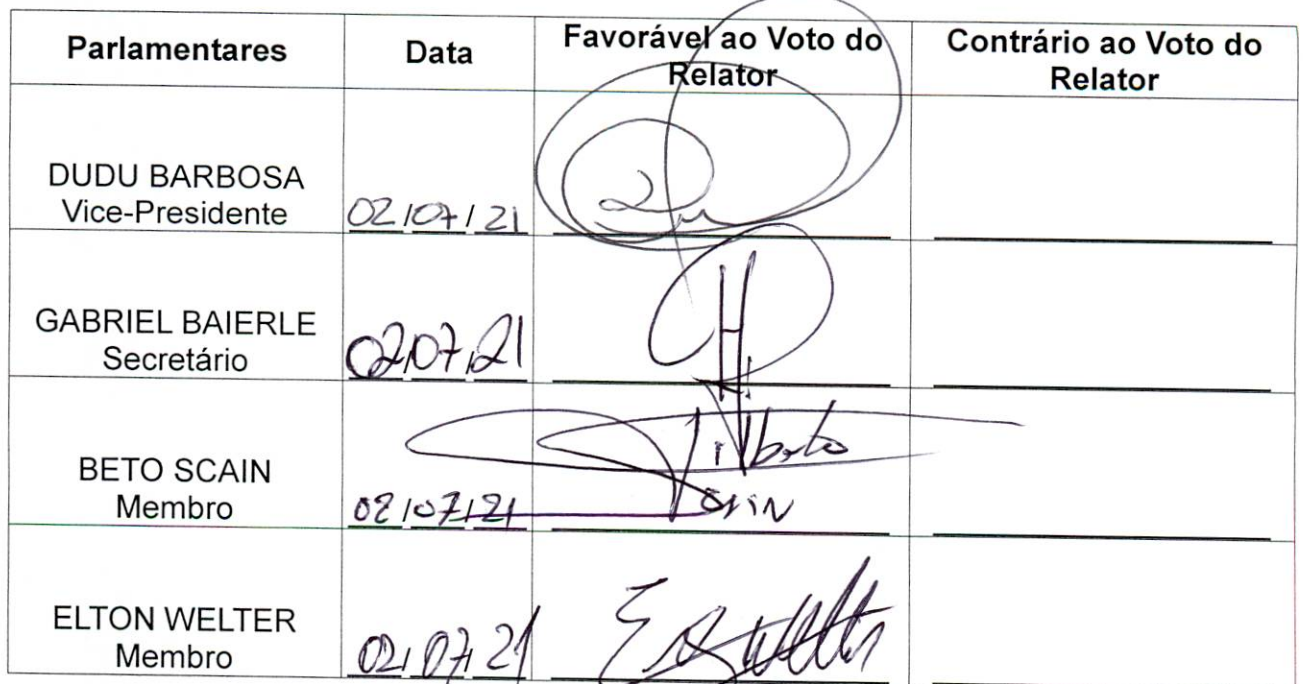 Parlamentares Data Favorável ao Voto do Relator Contrário ao Voto do Relator
DUDU BARBOSA
Vice-Presidente 02/07/21
GABRIEL BAIERLE
Secretário 02/07/21
BETO SCAIN
Membro 02/07/21
ELTON WELTER
Membro 02/07/21